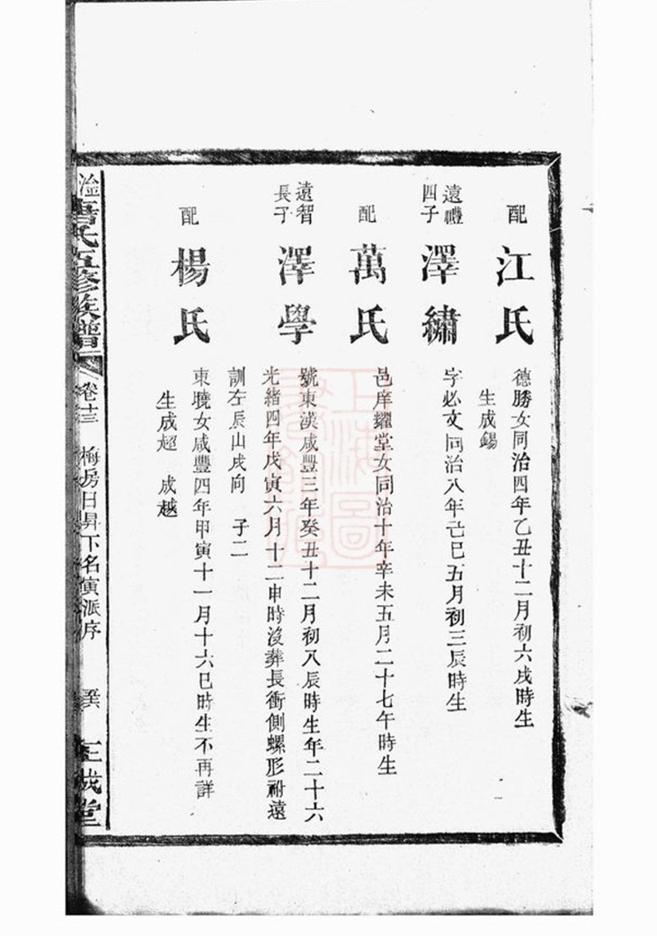 配
江氏
德勝女同治四年乙丑十二月初六戌時生
生成錫
遠禮
四子
澤繡
字必文同治八年己巳五月初三辰時生
配
萬氏
邑庠耀堂女同治十年辛未五月二十七午時生
遠智
長子
澤學
號東漢咸豐三年癸丑十二月初八辰時生年二十六
光緒四年戊寅六月十二申時沒葬長衝側螺形祔遠
訓左辰山戌向 子二
配
楊氏
東曉女咸豐四年甲寅十一月十六巳時生不再詳
生成超 成越
氏五修族譜
卷十三
梅房日昇下名寅派序
三成堂
上海圖